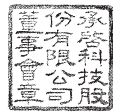 承啓科技股
份有限公司
董事會章